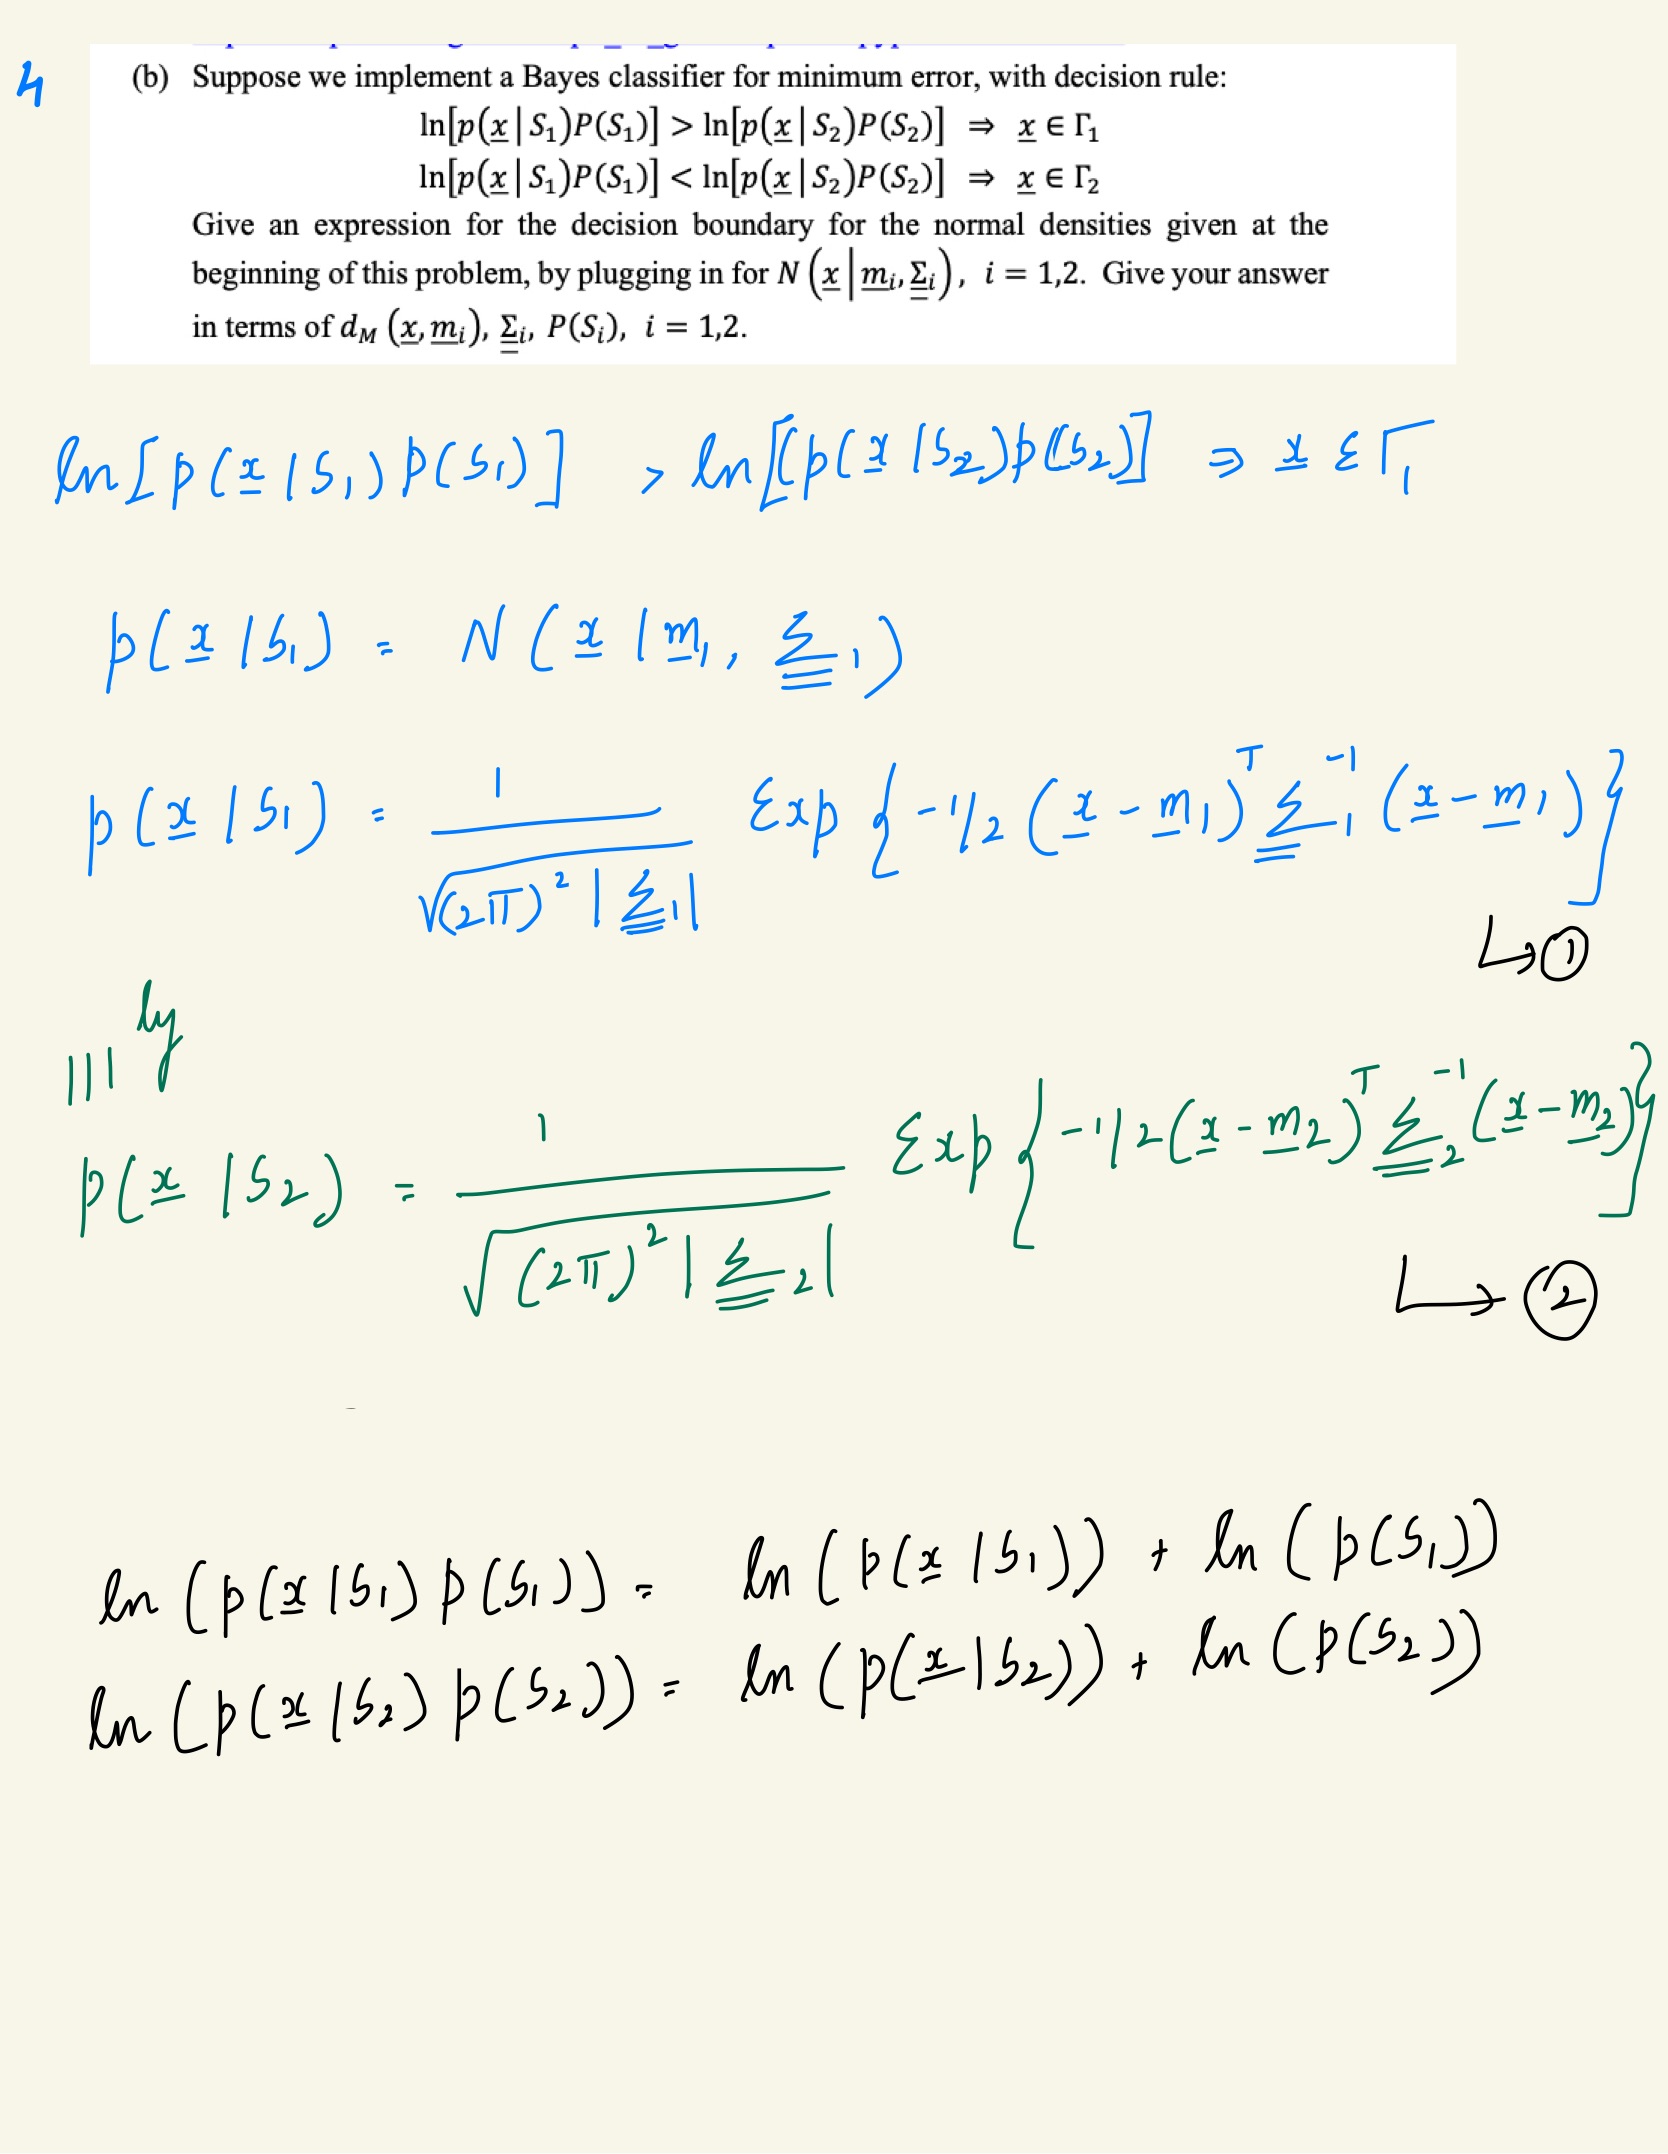 4
(b) Suppose we implement a Bayes classifier for minimum error, with decision rule:
ln[p(x|S₁)P(S₁)] > ln[p(x|S₂)P(S₂)] ⇒ x ∈ Γ₁
ln[p(x|S₁)P(S₁)] < ln[p(x|S₂)P(S₂)] ⇒ x ∈ Γ₂
Give an expression for the decision boundary for the normal densities given at the
beginning of this problem, by plugging in for N(x|mᵢ, Σᵢ), i = 1,2. Give your answer
in terms of d_M (x, mᵢ), Σᵢ, P(Sᵢ), i = 1,2.
ln[p(x|S₁)p(S₁)] > ln[(p(x|S₂)p(S₂)] ⇒ x ε Γ₁
p(x|S₁) = N(x|m₁, Σ₁)
p(x|S₁) = 1/√((2π)²|Σ₁|) Exp{-1/2 (x - m₁)ᵀ Σ₁⁻¹ (x - m₁)}
↳ ①
|||ly
p(x|S₂) = 1/√((2π)²|Σ₂|) Exp{-1/2 (x - m₂)ᵀ Σ₂⁻¹ (x - m₂)}
↳ ②
ln(p(x|S₁)p(S₁)) = ln(p(x|S₁)) + ln(p(S₁))
ln(p(x|S₂)p(S₂)) = ln(p(x|S₂)) + ln(p(S₂))